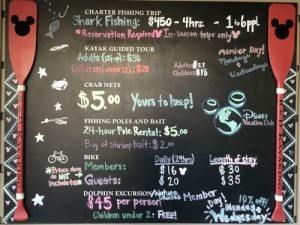 CHARTER FISHING TRIP
Shark Fishing: $450 - 4hrs. - 1-6 ppl.
*Reservation Required In-season trips only
KAYAK GUIDED TOUR
Adults: $30
Children (under 12): $20
Member Day!
Mondays
Wednesdays
Adults $27
Children $18
CRAB NETS
$5.00 Yours to keep!
Disney
Vacation Club
FISHING POLES AND BAIT
24-hour Pole Rental: $5.00
Bag of Shrimp bait: $2.00
*Prices
do NOT
include
BIKE Daily (24hrs) Length of stay
Members: $16 $30
Guests: $20 $35
DOLPHIN EXCURSION
$45 per person
Children under 2: FREE!
Member Day!
10% off!
Mondays
Wednesdays